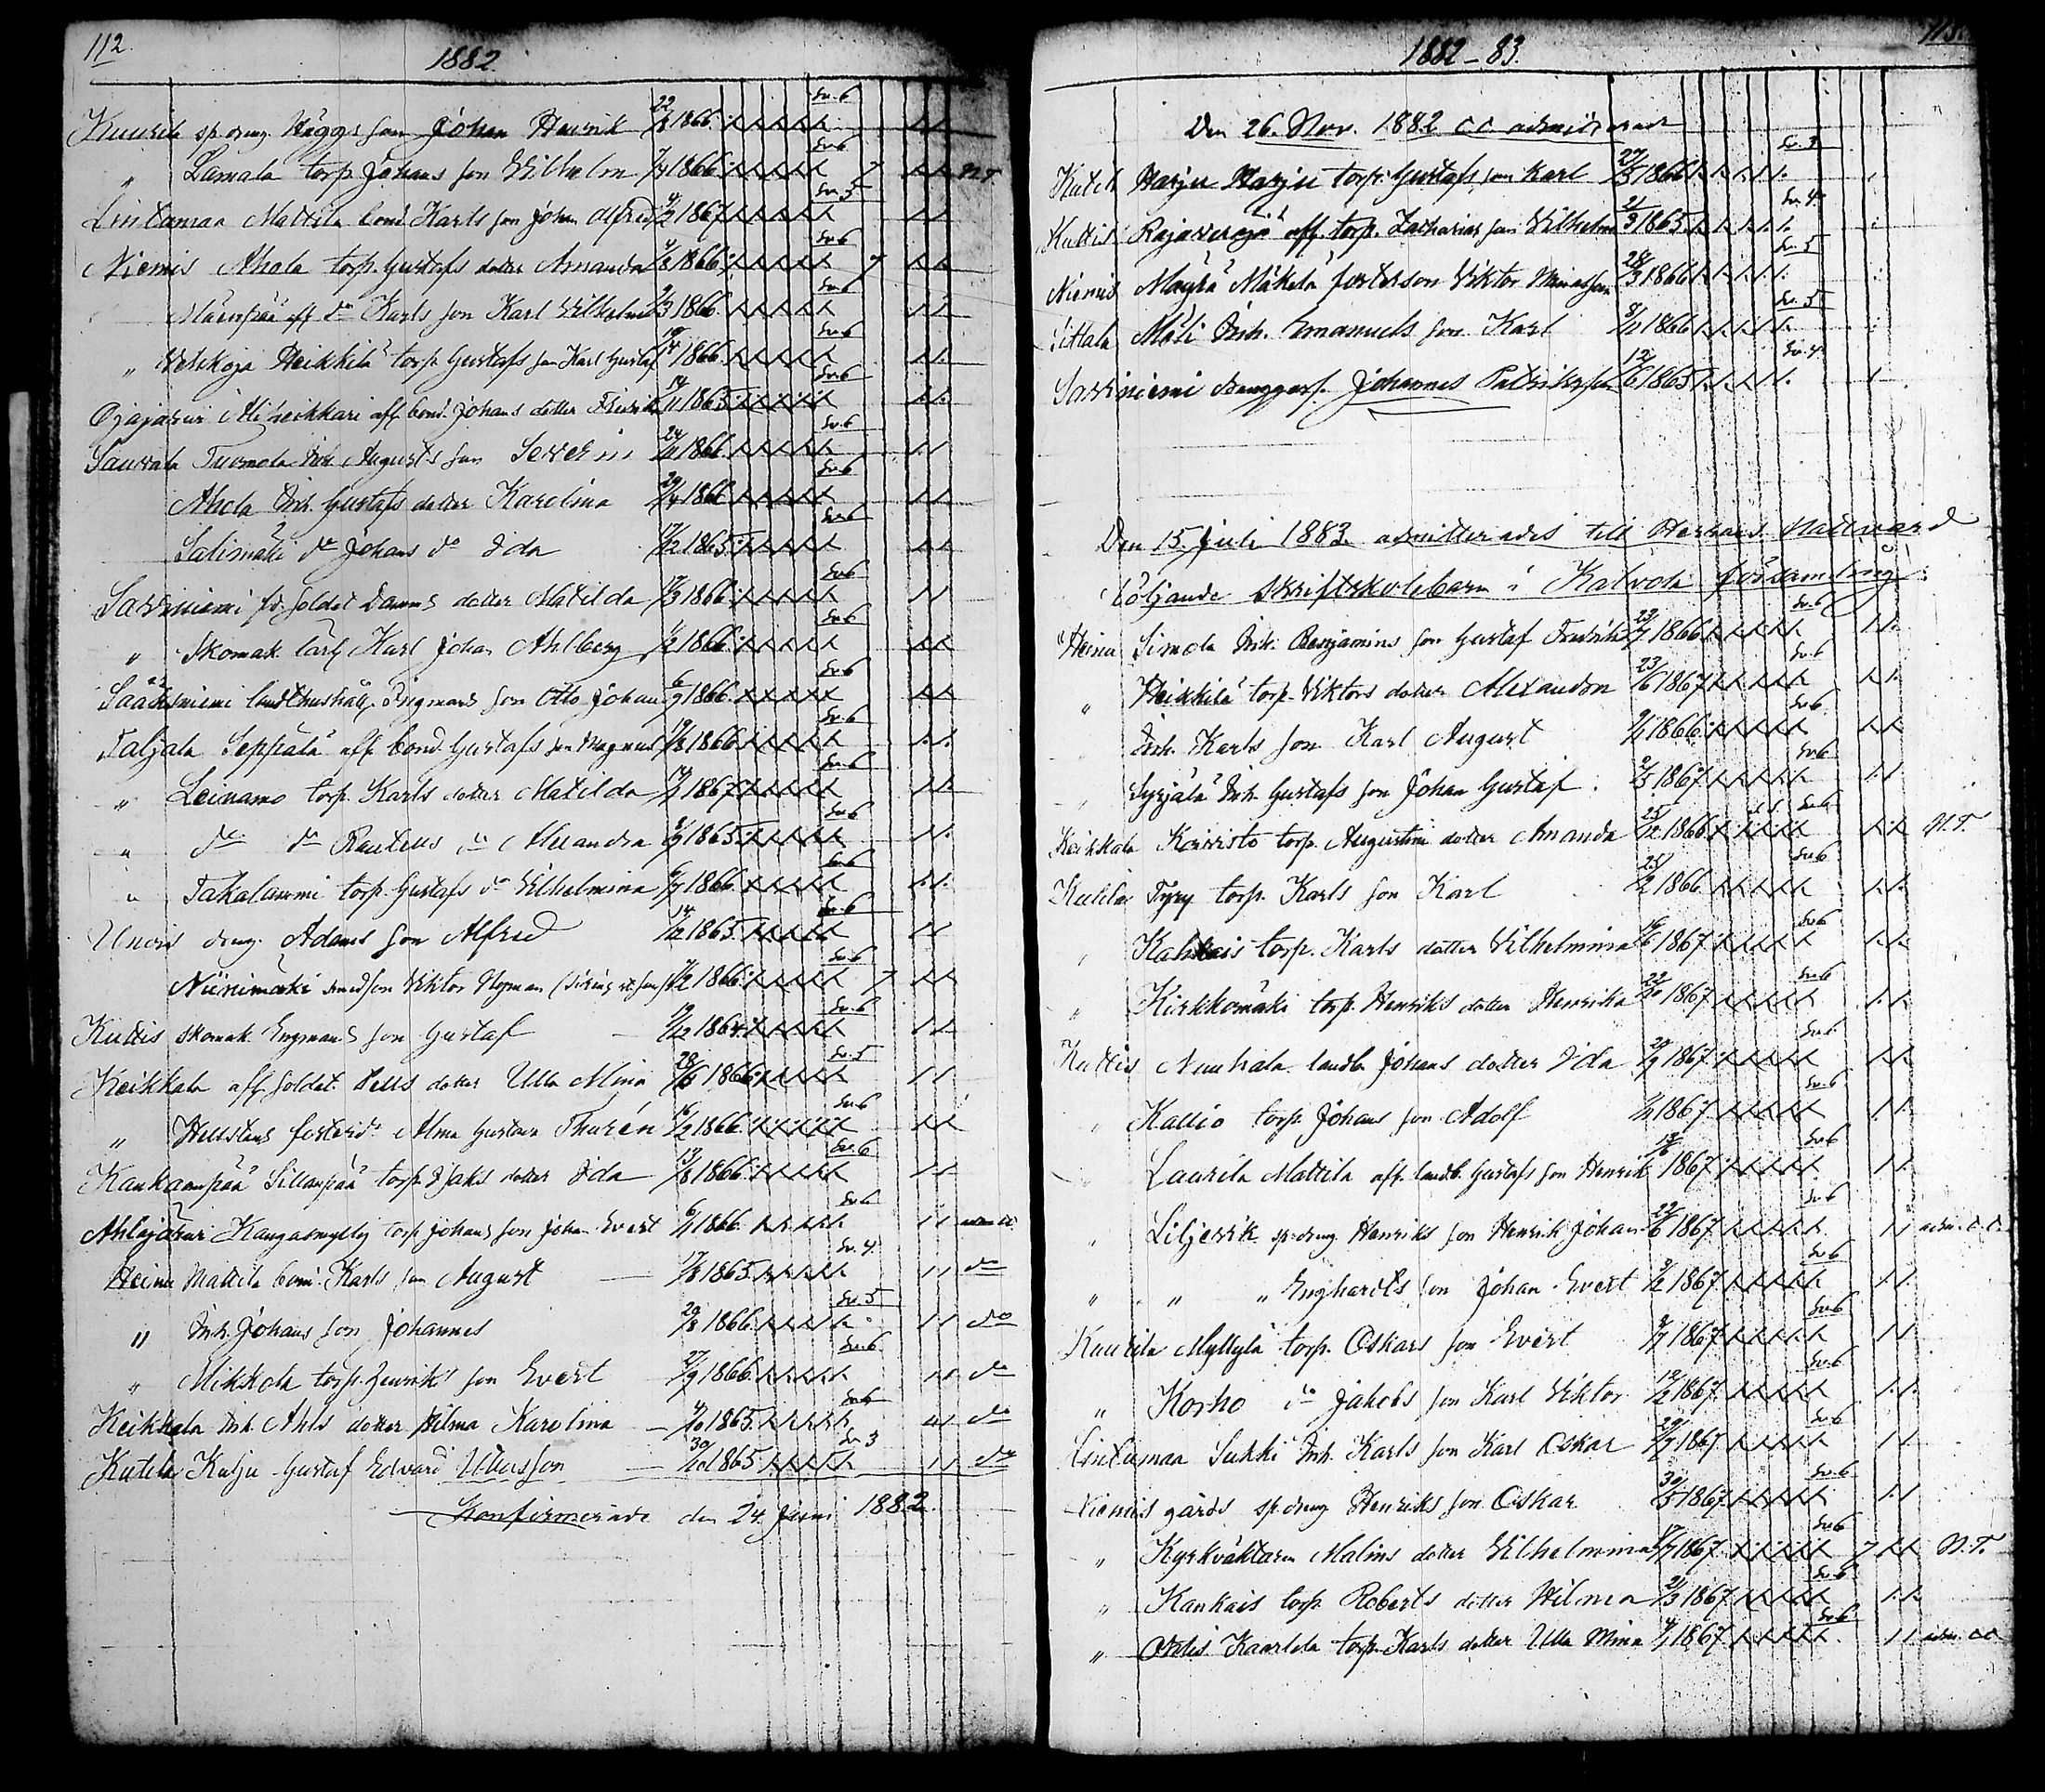 112.
1882.
Kuurila sp. dreng Häggs son Johan Henrik 22/8 1866. Sv. 6
" Lamala torp. Johans son Vilhelm 7/4 1866. Sv. 6 7 N.T.
Lintumaa Mattila bond. Karls son Johan Alfred 4/2 1867 Sv. 5
Niemis Ahola torp. Gustafs dotter Amanda 4/8 1866. Sv. 6 7
Mäenpää aff. do Karls son Karl Vilhelm 2/3 1866. Sv. 6
" Verkoja Heikkilä torp. Gustafs son Karl Gustaf 1866. Sv. 6
Ojajärvi Aliheikkari aff. bond. Johans dotter Fredrika 14/11 1865. Sv. 6
Sauvala Turmola Inh. Augusts son Severin 24/11 1866. Sv. 6
Ahola Inh. Gustafs dotter Karolina 29/4 1866. Sv. 6
Salismäki do Johans do Ida 17/12 1865. Sv. 6
Savviniemi fd. soldat Damms dotter Matilda 1866. Sv. 6
" Skomak. lärl. Karl Johan Ahlberg 1/2 1866. Sv. 6
Sääksniemi Ingmans son Otto Johan 6/9 1866. Sv. 6
Taljala Seppälä aff. bond. Gustafs son Magnus 19/8 1866. Sv. 6
" Leinamo torp. Karls dotter Matilda 14/1 1867. Sv. 6
" do do Rauteus do Alexandra 1865. Sv. 6
" Takalammi torp. Gustafs do Vilhelmina 6/7 1866. Sv. 6
Uneris dreng. Adams son Alfred 14/12 1865. Sv. 6
Niinimäki smed son Viktor Nyman 1866. Sv. 6 7
Kuttis skomak. Engmans son Gustaf 9/12 1864. Sv. 6
Keikkala aff. soldat Pells dotter Ulla Mina 28/6 1866. Sv. 5
" Hellstens fosterdr. Alma Gustava Thurén 16/2 1866. Sv. 6
Kankaanpää Sillanpää torp. Isaks dotter Ida 13/8 1866. Sv. 6
Ahlajärvi Kangasmylly torp. Johans son Johan Evert 6/11 1866. Sv. 6 adm. cc.
Heinu Mattila bond. Karls son August 17/8 1865. Sv. 4. do
" Inh. Johans son Johannes 29/8 1866. Sv. 5 do
" Mikkola torp. Henriks son Evert 27/9 1866. Sv. 6 do
Keikkala Inh. Ahls dotter Hilma Karolina 4/10 1865. Sv. 6 do
Kutila Kulju Gustaf Edvard Ullasson 30/10 1865 Sv. 3 do
Konfirmerade den 24 Juni 1882.
1882–83.
113.
Den 26. Nov. 1882 cc admitterade
Kutil Harju Harju torp. Gustafs son Karl 27/5 1866 Sv. 3
Kuttis Rajaveräjä aff. torp. Zacharias son Vilhelm 21/3 1865. Sv. 4
Niemis Mäkelä fosterson Viktor 28/3 1866 Sv. 5
Sittala Mäli Inh. Emanuels son Karl 8/11 1866 Sv. 5
Savviniemi Johannes Patriksson 12/6 1865 Sv. 4
Den 15 Juli 1883 admitterades till Herrans Nattvard
följande skriftskolebarn i Kalvola församling:
Heinu Simola Inh. Benjamins son Gustaf Fredrik 23/7 1866 Sv. 6
" Heikkilä torp. Viktors dotter Alexandra 23/6 1867 Sv. 6
" Inh. Karls son Karl August 1866. Sv. 6
" Syrjälä Inh. Gustafs son Johan Gustaf. 2/5 1867 Sv. 6
Keikkala Koivisto torp. Augustins dotter Amanda 25/12 1866 Sv. 6 N.T.
Kutila Tyry torp. Karls son Karl 25/2 1866 Sv. 6
" Kankais torp. Karls dotter Vilhelmina 16/6 1867 Sv. 6
" Kirkkomäki torp. Henriks dotter Henrika 22/10 1867 Sv. 6
Kuttis Nauhala landb. Johans dotter Ida 29/9 1867 Sv. 6
" Kallio torp. Johans son Adolf 1867 Sv. 6
" Laurila Mattila aff. landb. Gustafs son Henrik 1867. Sv. 6
" Liljevik sp. dreng Henriks son Henrik Johan 22/6 1867 Sv. 6 adm. c.c.
" " " Enghardts son Johan Evert 1867 Sv. 6
Kuurila Myllylä torp. Oskars son Evert 9/7 1867 Sv. 6
" Korho do Jakobs son Karl Viktor 19/2 1867 Sv. 6
Lintumaa Sukki Inh. Karls son Karl Oskar 29/7 1867 Sv. 6
Niemis gårds sp. dreng Henriks son Oskar 30/5 1867 Sv. 6
" Kyrkväktaren Malins dotter Vilhelmina 17/7 1867 Sv. 6 7 N.T.
" Kankais torp. Roberts dotter Hilma 21/3 1867 Sv. 6
" Kaarlela torp. Karls dotter Ulla Mina 4/1 1867 Sv. 6 adm. cc